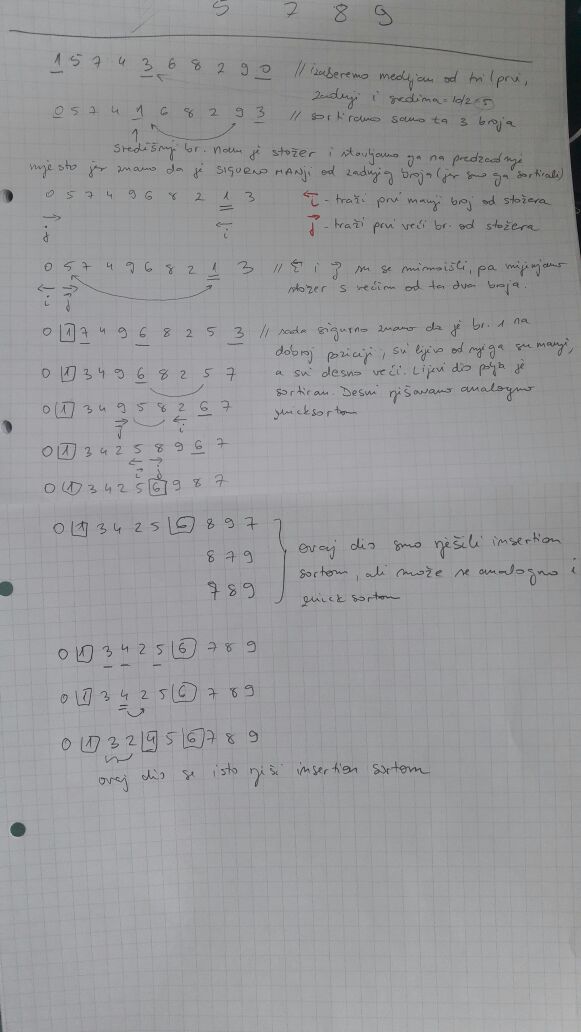 5 7 8 9
1 5 7 4 3 6 8 2 9 0 // izaberemo medijan od tri (prvi,
zadnji i sredina = 10/2 = 5)
0 5 7 4 1 6 8 2 9 3 // sortiramo samo ta 3 broja
Središnji br. nam je stožer i stavljamo ga na predzadnje
mjesto jer znamo da je SIGURNO MANJI od zadnjeg broja (jer smo ga sortirali)
0 5 7 4 9 6 8 2 1 3 i - traži prvi manji broj od stožera
j i j - traži prvi veći br. od stožera
0 5 7 4 9 6 8 2 1 3 // i i j su se mimoišli, pa mijenjamo
i j stožer s većim od ta dva broja.
0 1 7 4 9 6 8 2 5 3 // sada sigurno znamo da je br. 1 na
dobroj poziciji, svi lijevo od njega su manji,
0 1 3 4 9 6 8 2 5 7 a svi desno veći. Lijevi dio polja je
sortiran. Desni rješavamo analogno
0 1 3 4 9 5 8 2 6 7 quicksortom
j i
0 1 3 4 2 5 8 9 6 7
i j
0 1 3 4 2 5 6 9 8 7
0 1 3 4 2 5 6 8 9 7
ovaj dio smo rješili insertion
8 7 9
sortom, ali može se analogno i
7 8 9
quick sortom
0 1 3 4 2 5 6 7 8 9
0 1 3 4 2 5 6 7 8 9
0 1 3 2 4 5 6 7 8 9
ovaj dio se isto riješi insertion sortom